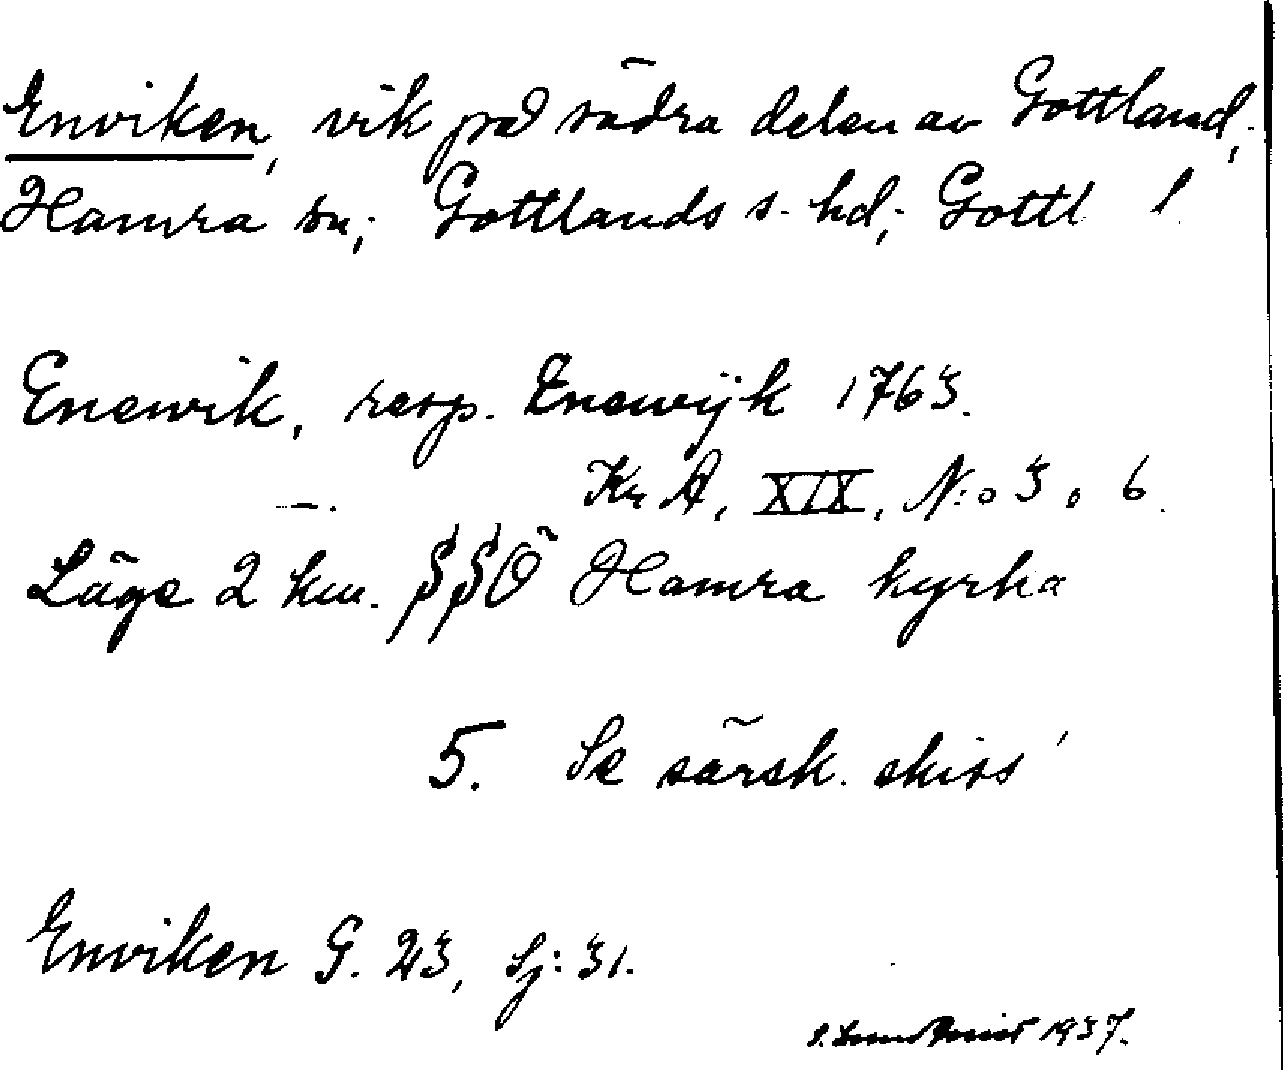 Enviken, vik på södra delen av Gottland;
Hamra sn; Gottlands s. hd; Gottl l
Enewik, resp. Enewijk 1763.
–. Kr A, XIX, N:o 3, 6.
Läge 2 km. SSÖ Hamra kyrka
5. Se särsk. skiss
Enviken G. 23, Sj: 31.
1937.